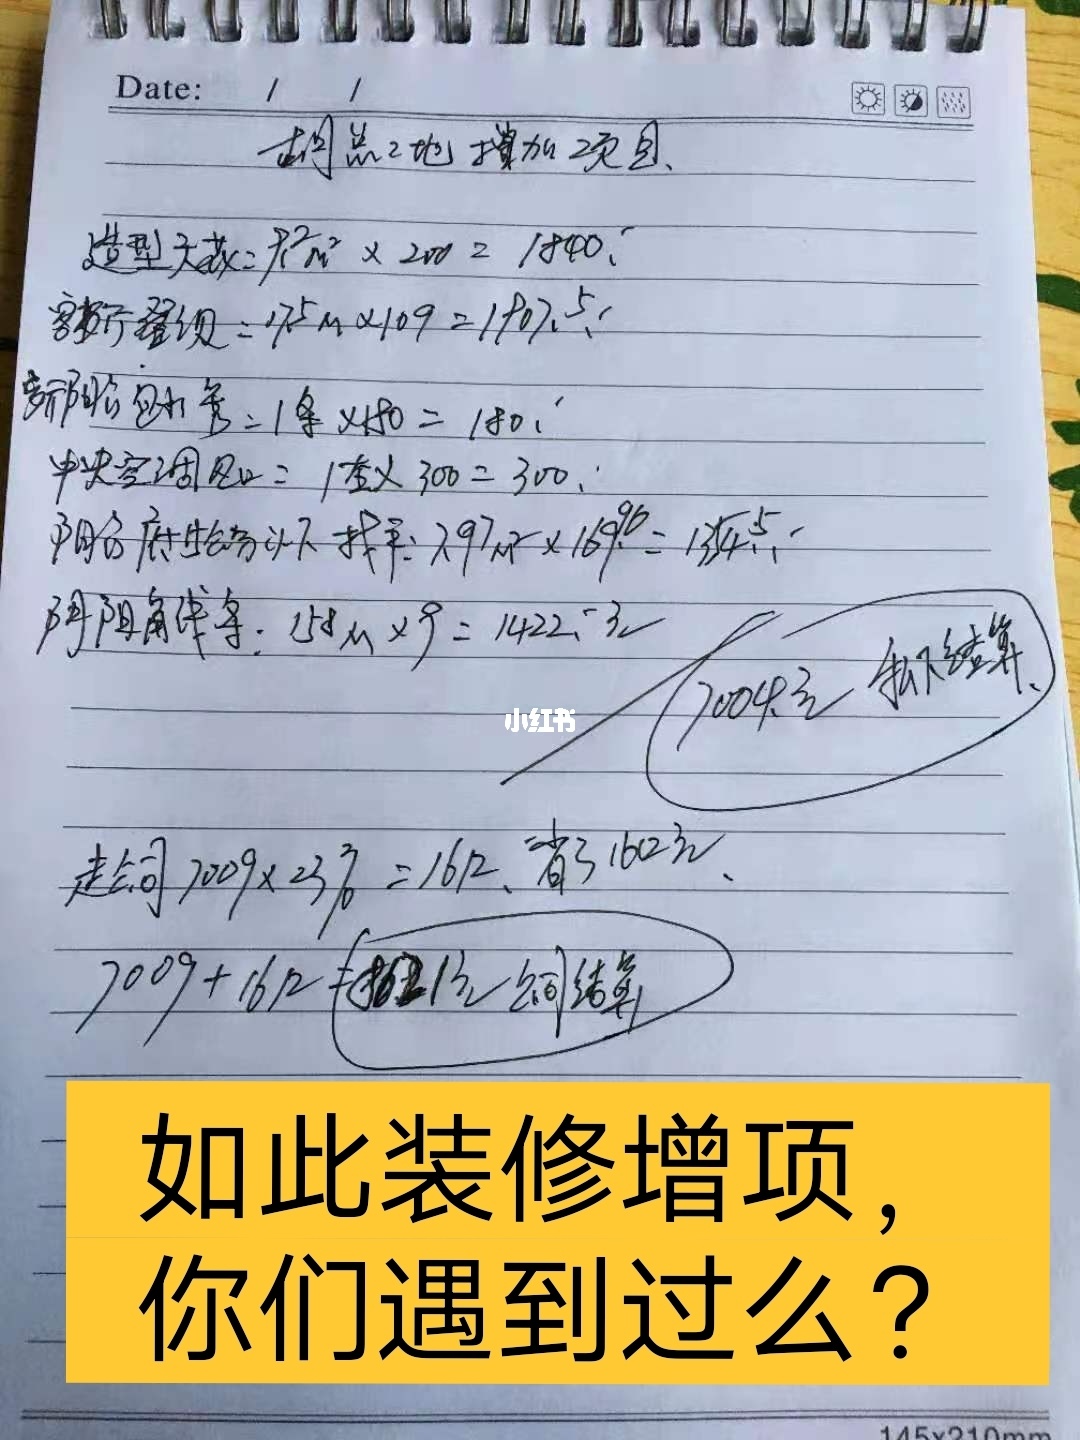 Date: / /
胡总工地增加项目、
造型天花=9.2m² × 200 = 1840.
客餐厅叠级=17.5m×109=1907.5.
阳台包水管=1条×180=180.
中央空调风口=1套×300=300.
阳台 以下找平:7.97m²×169.96=1354.5.
阴阳角线条:158m×9=1422.元
7009.元 私下结算、
小红书
走公司 7009×23%=1612、省了1602元、
7009+1612=8621元公司结算
如此装修增项,
你们遇到过么?
145x210mm